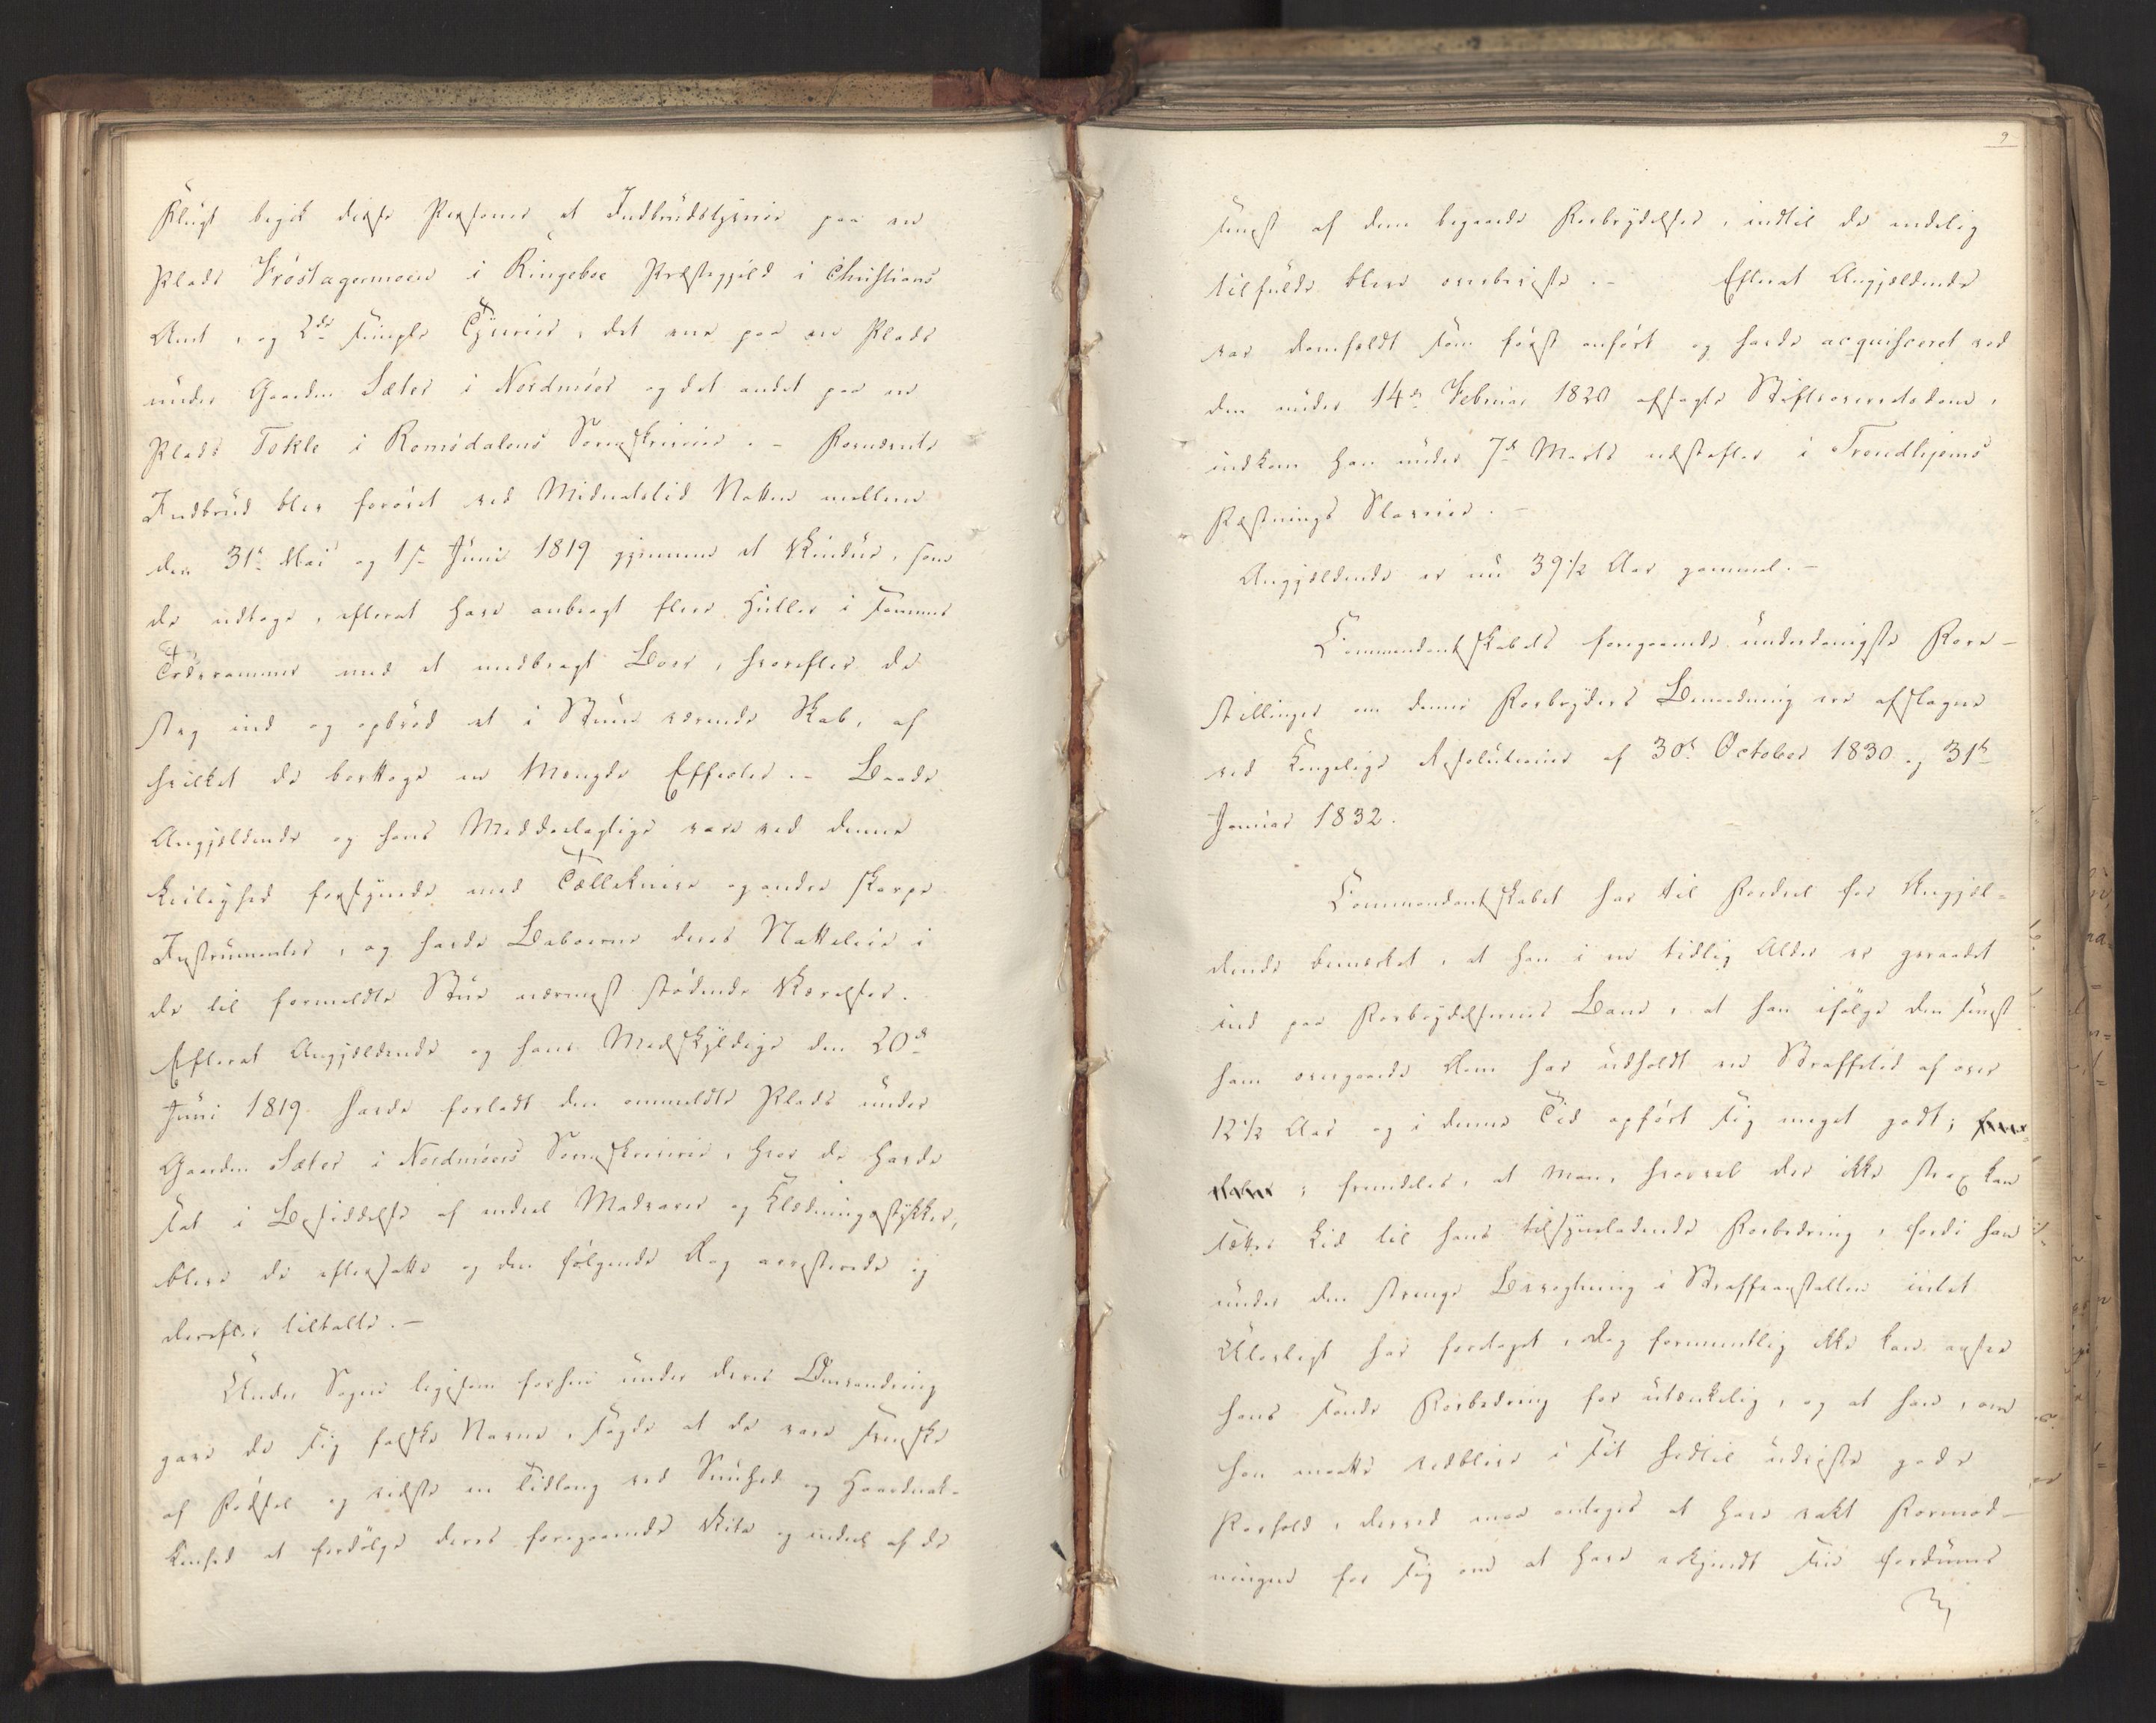 Flugt begik disse Personer et Indbrudstyverie paa en
Plads Frostagermoen i Ringeboe Præstegjeld i Christians
Amt, og 2de simple Tyverier, det ene paa en Plads
under Gaarden Sæter i Nordmöer og det andet paa en
Plads Tokle i Romsdalens Sorenskriverie. – Fornævnte
Indbrud blev forövet ved Midnatstid Natten mellem
den 31te Mai og 1ste Juni 1819 gjennem et Vindue, som
de udtoge, efterat have anbragt flere Huller i Tommer
med et medbragt Boer, hvorefter de
steg ind og opbröd et i Stuen værende Skab, af
hvilket de borttoge en Mængde Effecter. – Baade
Angjældende og hans Meddeelagtige vare ved denne
Leilighed forsynede med Tælleknive og andre skarpe
Instrumenter, og havde Beboerne deres Natteleie i
de til formeldte Stue nærmest stödende Værelser.
Efterat Angjældende og hans Medskyldige den 20de
Juni 1819 havde forladt den ommeldte Plads under
Gaarden Sæter i Nordmöers Sorenskriverie, hvor de havde
sat i Besiddelse af endeel Madvarer og Klædningsstykker,
bleve de eftersatte og den fölgende Dag arresterede og
derefter tiltalte. –
Under Sagen ligesom forhen under deres Omvandring
gave de sig falske Navne, sagde at de vare svenske
af Födsel og vidste en Tidlang ved Snuhed og Haardnak-
kenhed at fordölge deres foregaaende Vita og endeel af de
9
senest af dem begaaede Forbrydelser, indtil de endelig
tilfulde bleve overbeviste. – Efterat Angjældende
var domfældt som först anfört og havde acquisceret ved
den under 14de Februar 1820 afsagte Stiftsoverretsdom,
indkom han under 7de Marts næstefter i Trondhjems
Fæstnings Slaverie. –
Angjældende er nu 39 1/2 Aar gammel. –
Commandantskabets foregaaende underdanigste Fore-
stillinger om denne Forbryders Benaadning ere afslagne
ved Kongelige Resolutioner af 30te October 1830 og 31te
Januar 1832.
Commandantskabet har til Fordeel for Angjæl-
dende bemærket, at han i en tidlig Alder er geraadet
ind paa Forbrydelsernes Bane, at han ifölge den senest
ham overgaaede Dom har udholdt en Straffetid af over
12 1/2 Aar og i denne Tid opfört sig meget godt;
; fremdeles, at man, hvorvel der ikke strax kan
sættes Lid til hans tilsyneladende Forbedring, fordi han
under den strenge Bevogtning i Straffeanstalten intet
Ulovligt har foretaget, dog formeentlig ikke kan ansee
hans sande Forbedring for utænkelig, og at han, om
han maatte vedblive i sit hidtil udviste gode
Forhold, derved maa antages at have vakt Formod-
ningen for sig om at have erkjendt sin fordums